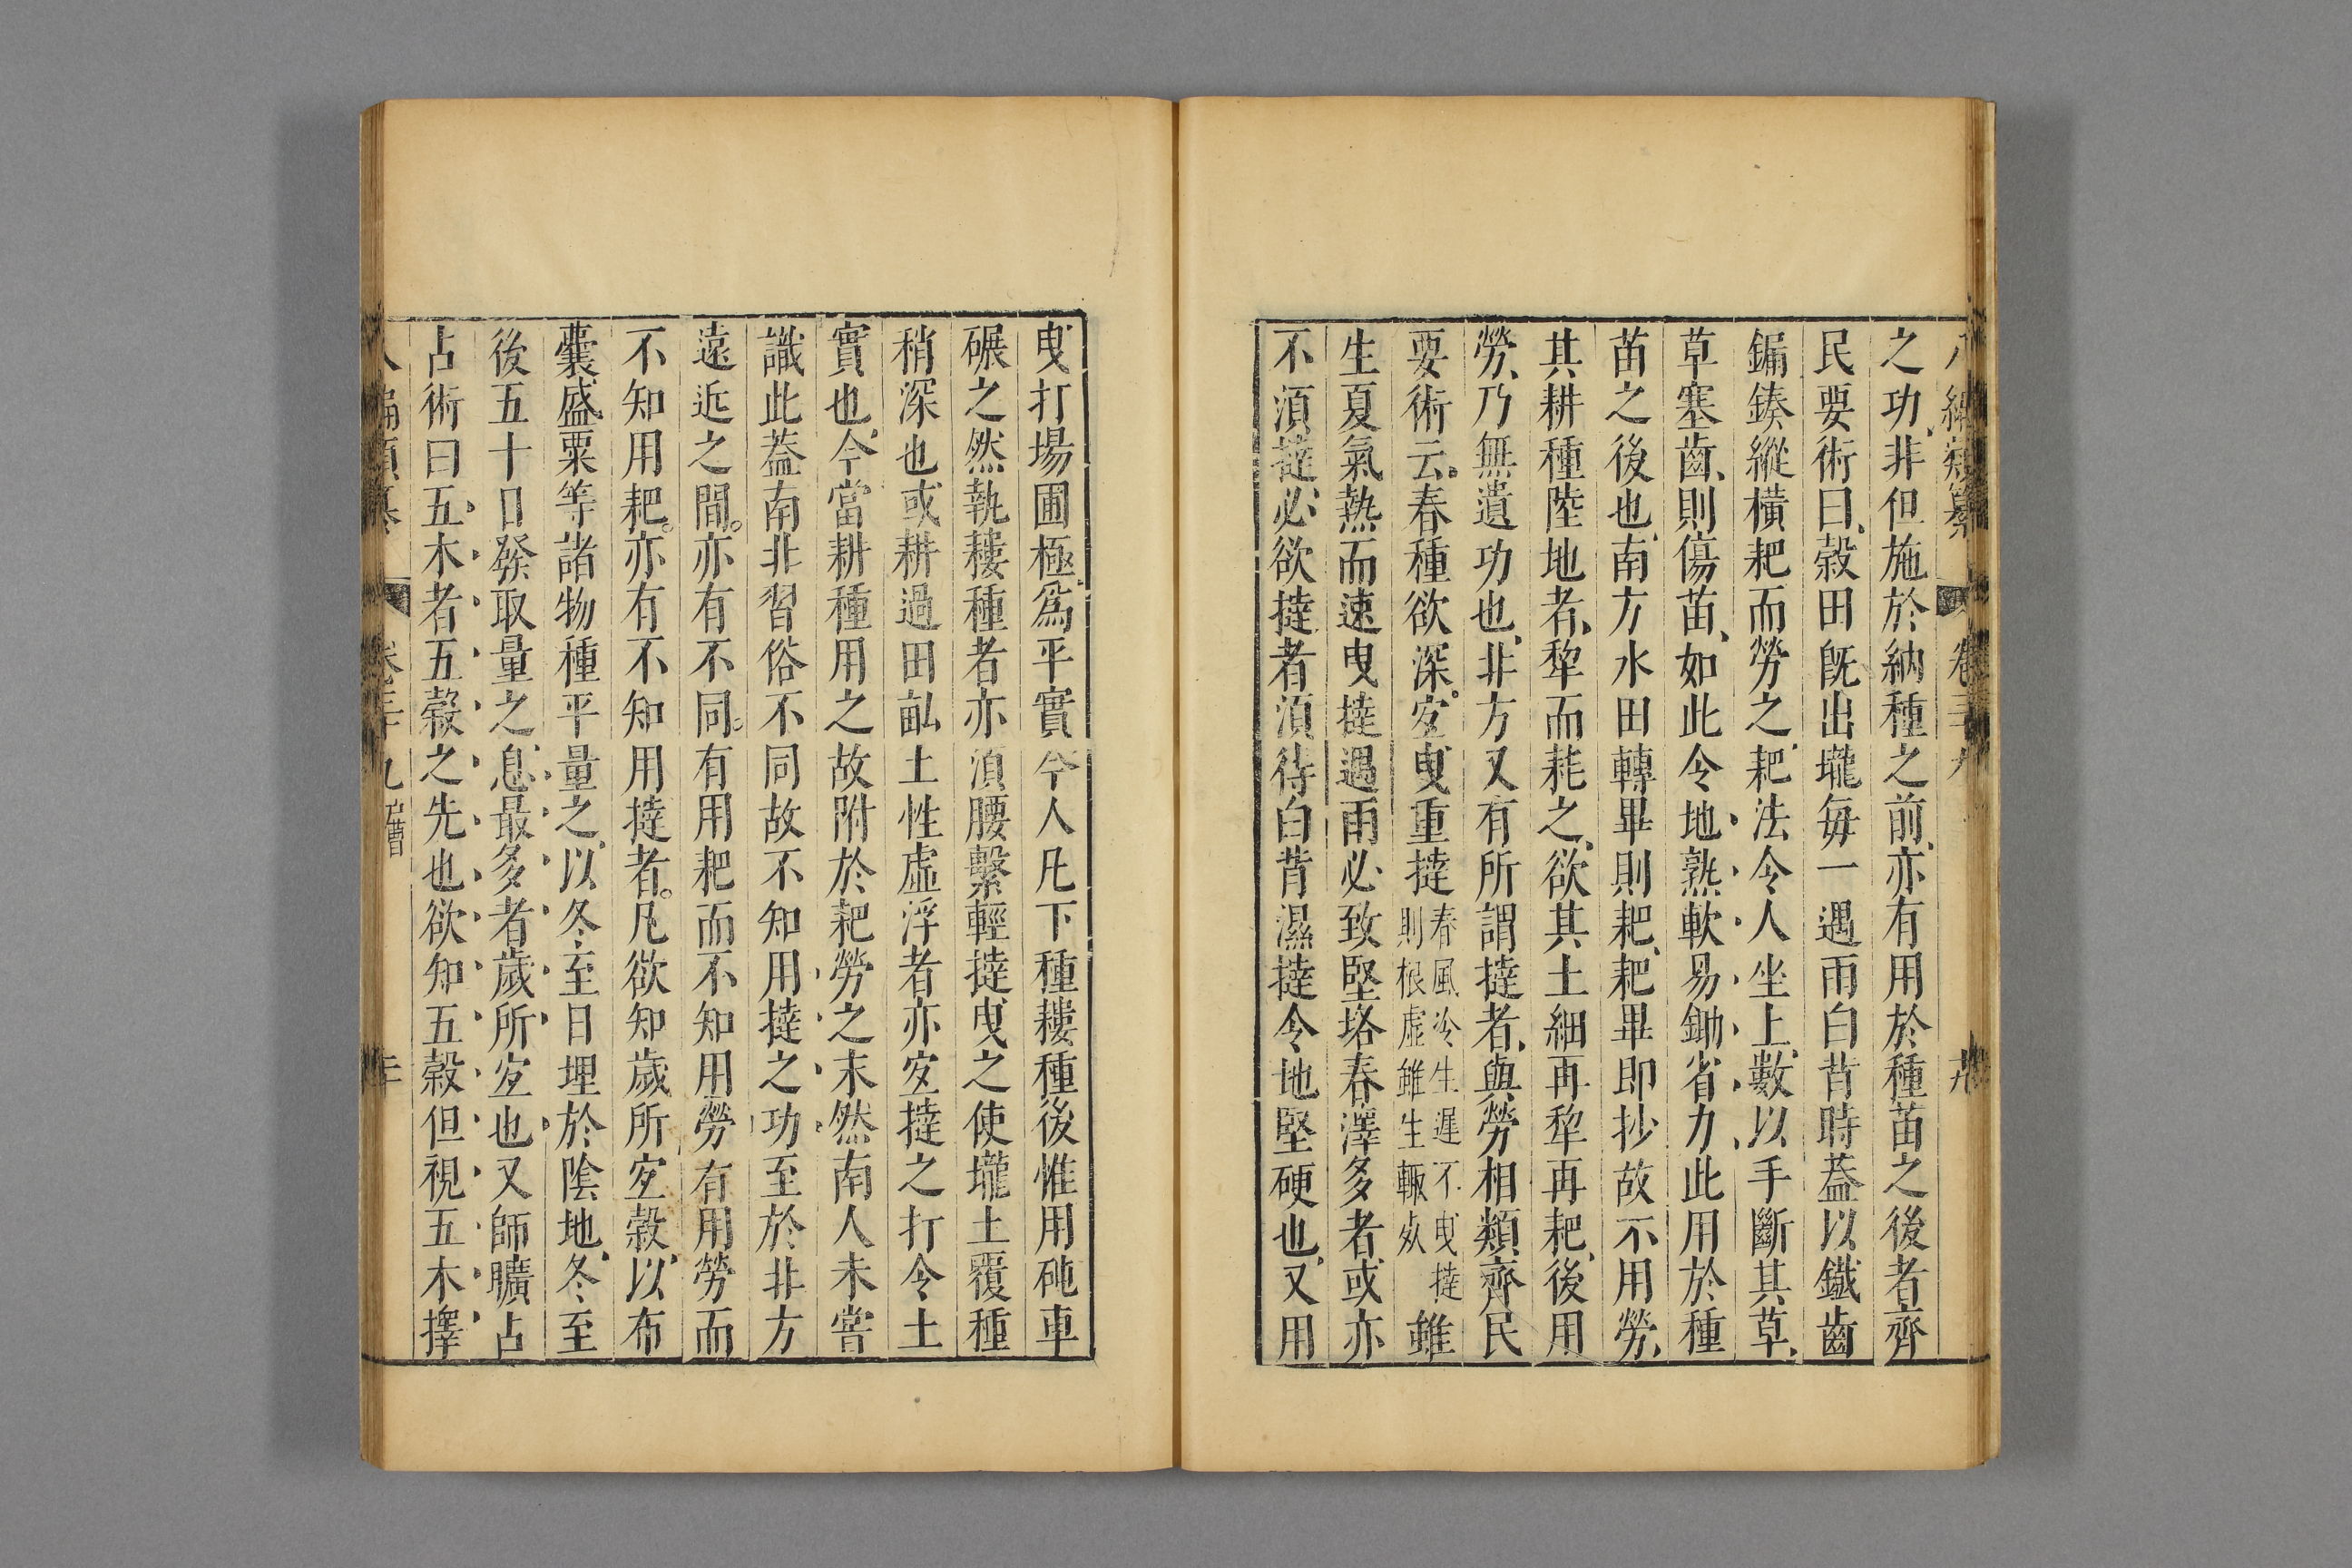 八編類纂 卷三十九 十九
之功非但施於納種之前亦有用於種苗之後者齊
民要術曰穀田旣出壠每一遇雨白背時蓋以鐵齒
鍽鏉縱橫耙而勞之耙法令人坐上數以手斷其草
草塞齒則傷苗如此令地熟軟易鋤省力此用於種
苗之後也南方水田轉畢則耙耙畢即抄故不用勞
其耕種陸地者犂而耗之欲其土細再犂再耙後用
勞乃無遺功也非方又有所謂撻者與勞相類齊民
要術云春種欲深宐曳重撻春風冷生遲不曳撻則根虛雖生輙死雖
生夏氣熱而速曳撻遇雨必致堅垎春澤多者或亦
不湏撻必欲撻者湏待白背濕撻令地堅硬也又用
曳打場圃極爲平實今人凡下種耬種後惟用砘車
碾之然執耬種者亦湏腰繫輕撻曳之使壠土覆種
稍深也或耕過田畝土性虛浮者亦宐撻之打令土
實也今當耕種用之故附於耙勞之末然南人未嘗
識此蓋南北習俗不同故不知用撻之功至於北方
遠近之間亦有不同有用耙而不知用勞有用勞而
不知用耙亦有不知用撻者凡欲知歲所宐穀以布
囊盛粟等諸物種平量之以冬至日埋於陰地冬至
後五十日發取量之息最多者歲所宐也又師曠占
占術曰五木者五穀之先也欲知五穀但視五木擇
八編類纂 卷三十九 二十